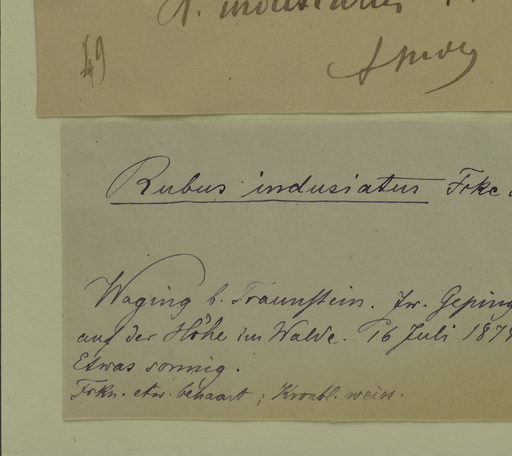 R. indusiatus
49
Rubus indusiatus Frke
Waging b. Traunstein. Zw. Geping
auf der Höhe im Walde. 16 Juli 187
Etwas sonnig.
Frkn. etw. behaart; Kronbl. weiss.